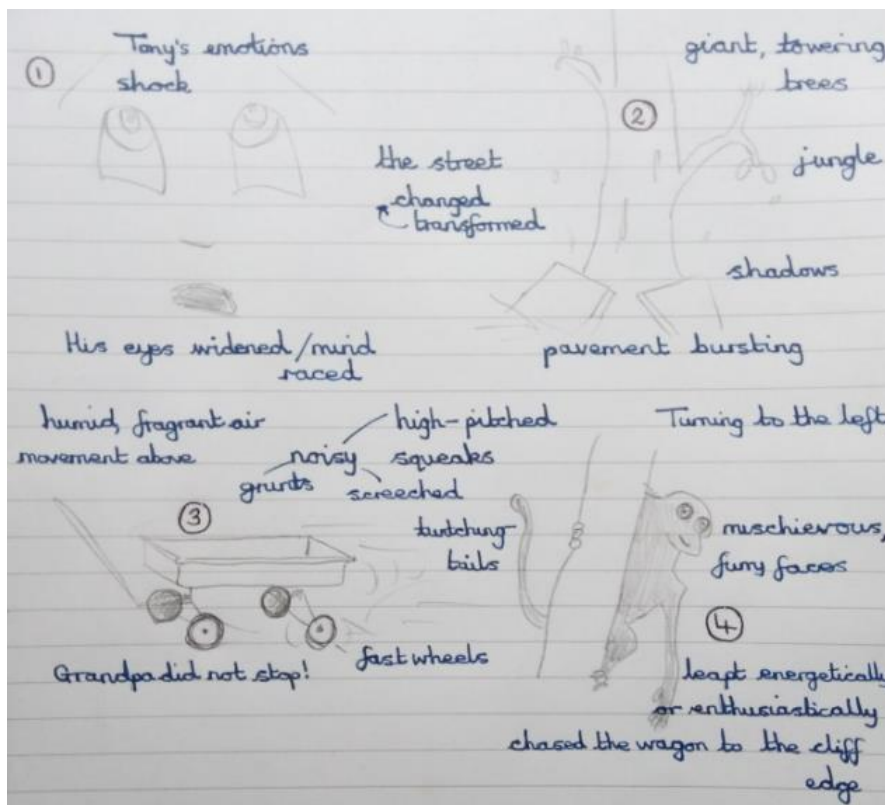 ①
Tony's emotions
shock
the street
changed
transformed
His eyes widened/mind
raced
②
giant, towering
trees
jungle
shadows
pavement bursting
humid, fragrant air
movement above
noisy
high-pitched
squeaks
grunts
screeched
③
Grandpa did not stop!
fast wheels
Turning to the left
twitching
tails
mischievous,
furry faces
④
leapt energetically
or enthusiastically
chased the wagon to the cliff
edge